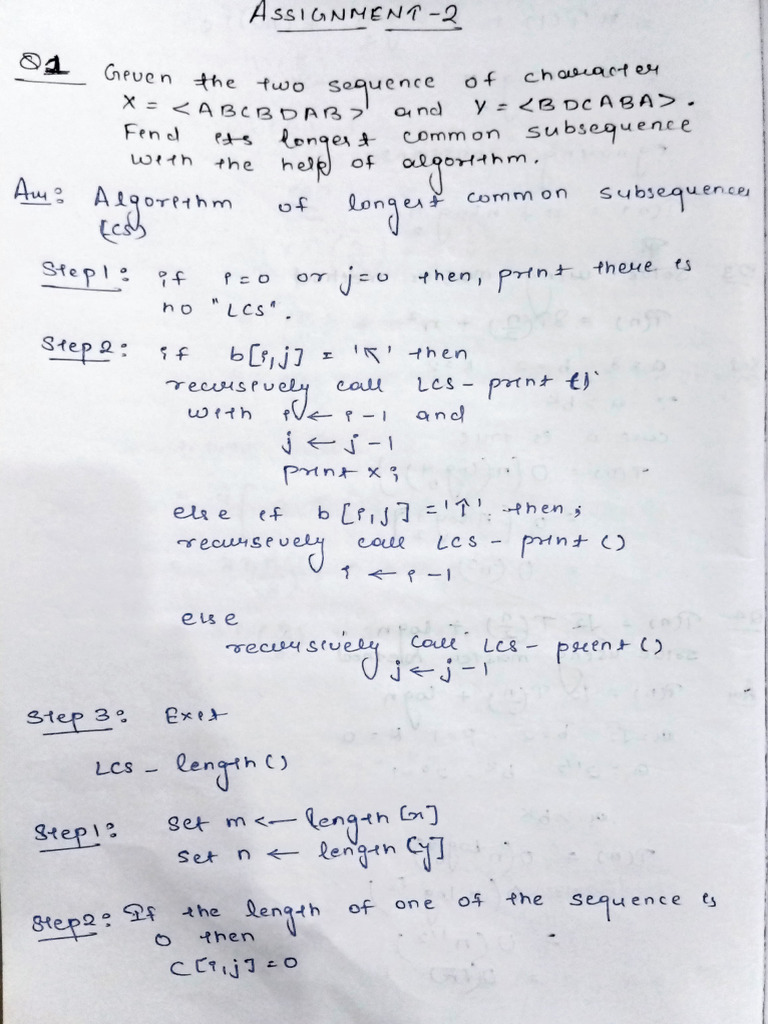 ASSIGNMENT-2
Q1 Given the two sequence of character
X = <ABCBDAB> and Y = <BDCABA>.
Find its longest common subsequence
with the help of algorithm.
Ans: Algorithm of longest common subsequence
(LCS)
Step1: if i=0 or j=0 then, print there is
no "LCS".
Step2: if b[i,j] = '↖' then
recursively call LCS-print ()
with i ← i-1 and
j ← j-1
print x;
else if b[i,j] = '↑' then;
recursively call LCS-print ()
i ← i-1
else
recursively call LCS-print ()
j ← j-1
Step 3: Exit
LCS - length ()
Step1: Set m ← length [x]
Set n ← length [y]
Step2: If the length of one of the sequence is
0 then
C[i,j] = 0